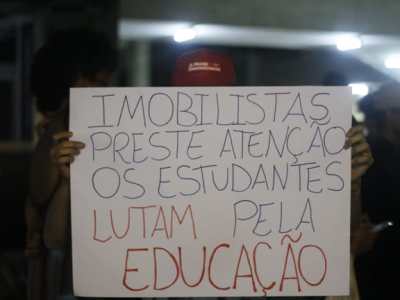 IMOBILISTAS
PRESTE ATENÇÃO
OS ESTUDANTES
LUTAM PELA
EDUCAÇÃO